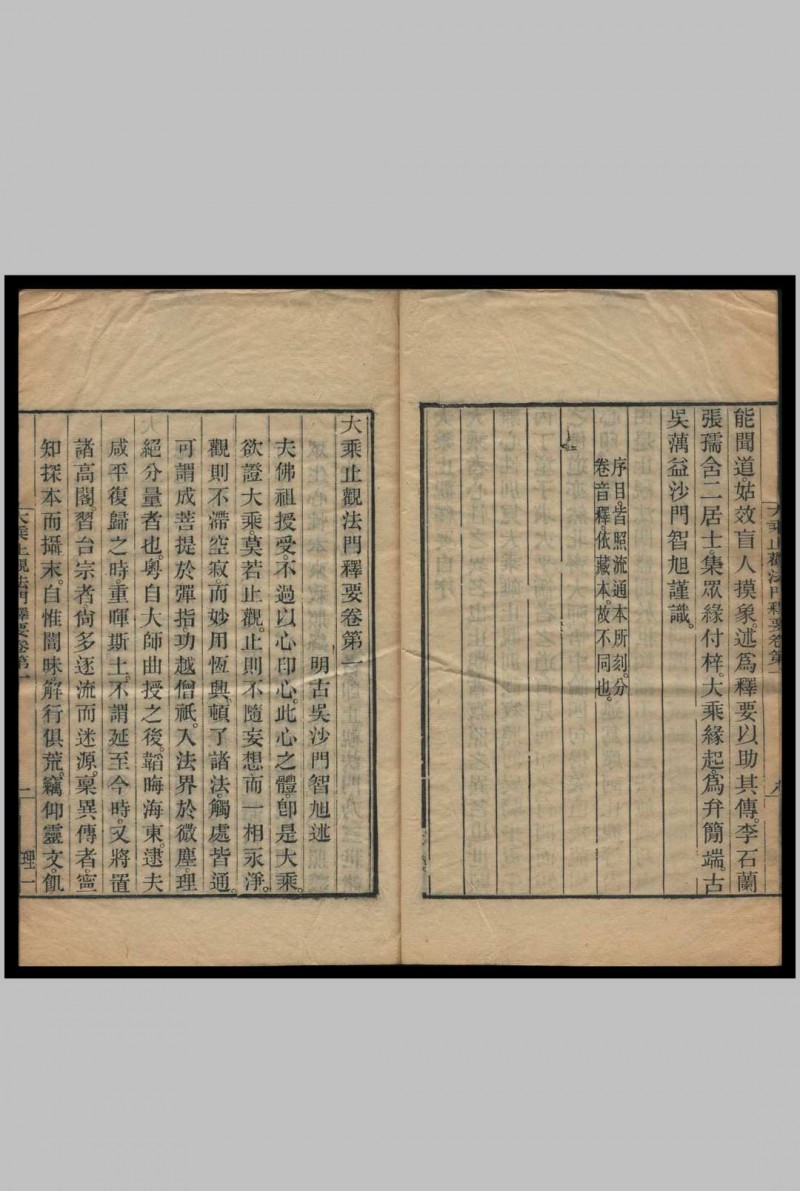 能聞道。姑效盲人摸象。述爲釋要以助其傳。李石蘭
張孺含二居士。集眾緣付梓。大乘緣起。爲弁簡端。古
吳蕅益沙門智旭謹識。
序目皆照流通本所刻。分
卷音釋。依藏本故不同也。
大乘止觀法門釋要卷第一
明古吳沙門智旭述
夫佛祖授受。不過以心印心。此心之體。卽是大乘。
欲證大乘。莫若止觀。止則不隨妄想。而一相永淨。
觀則不滯空寂。而妙用恆興。頓了諸法。觸處皆通。
可謂成菩提於彈指。功越僧祇。入法界於微塵。理
絕分量者也。粵自大師曲授之後。韜晦海東。逮夫
咸平復歸之時。重暉斯土。不謂延至今時。又將置
諸高閣。習台宗者。尙多逐流而迷源。稟異傳者。寧
知探本而攝末。自惟闇昧。解行俱荒。竊仰靈文。飢
大乘止觀法門釋要卷第一
二
理一